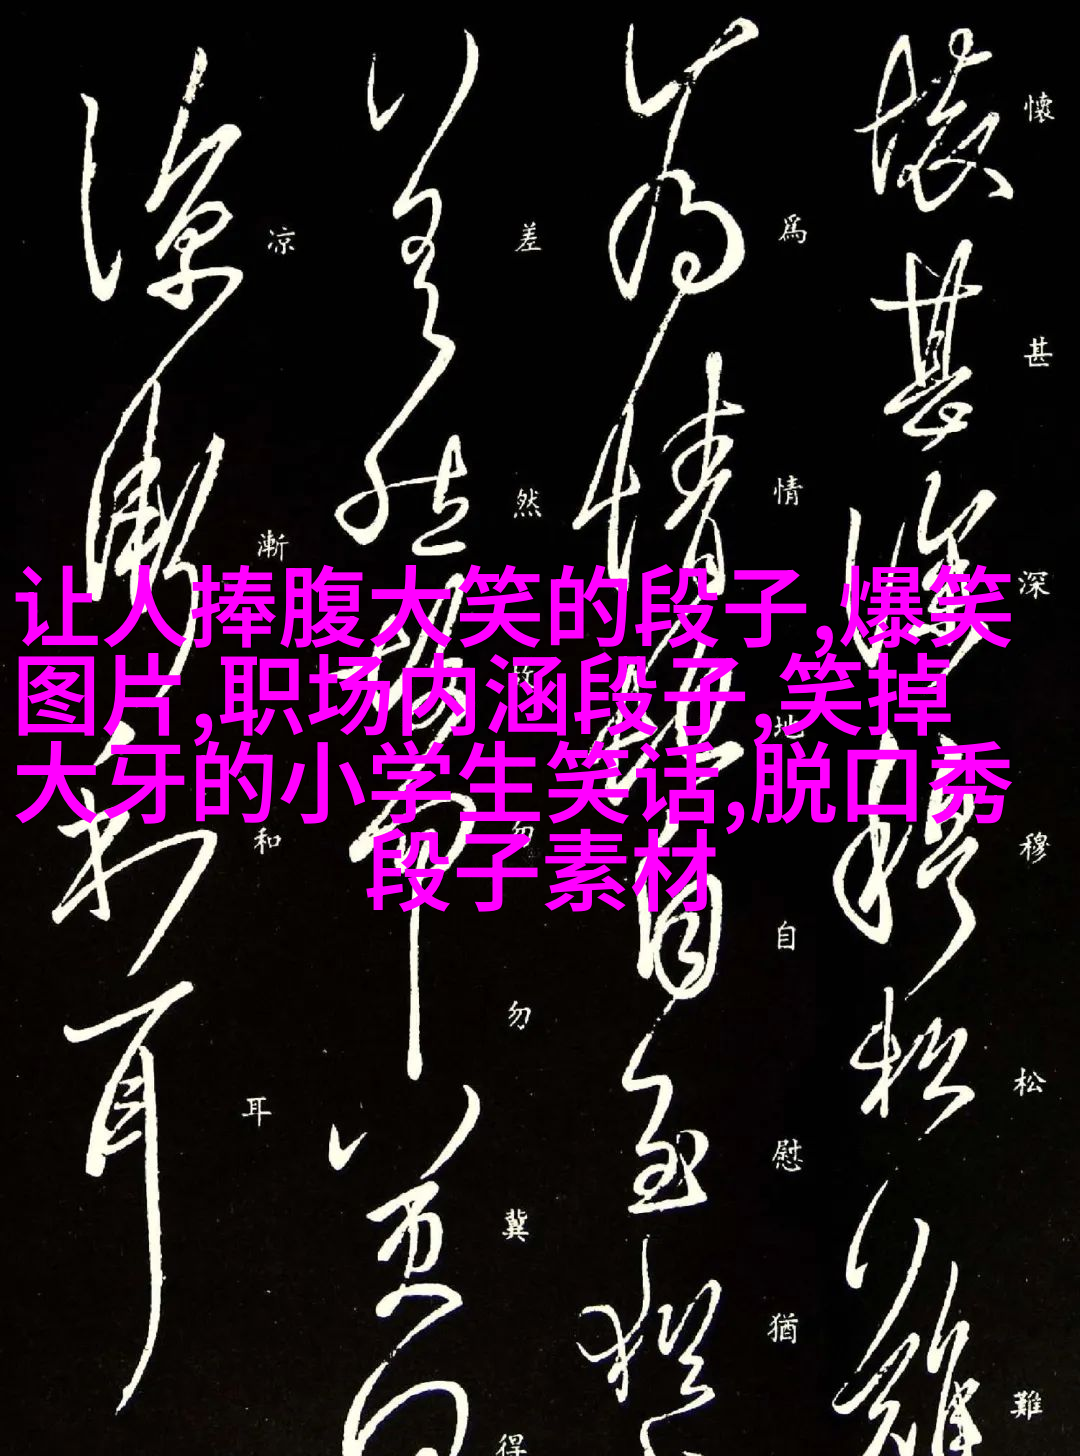 懷甚深穆松難
為情地自慰猶
差然故勿勿冀得
凉漸和耳
让人捧腹大笑的段子,爆笑
图片,职场内涵段子,笑掉
大牙的小学生笑话,脱口秀
段子素材